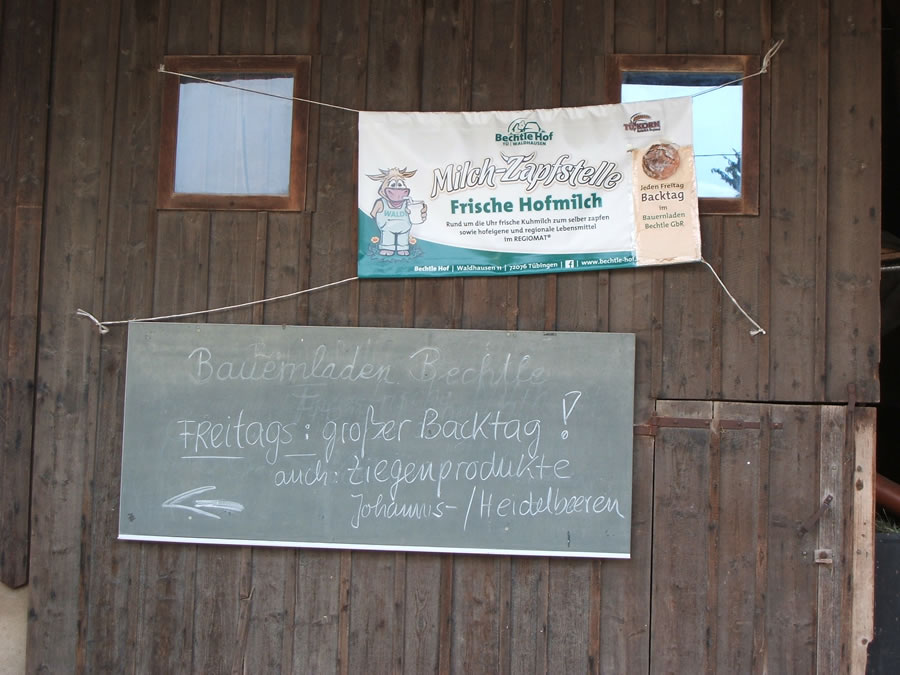 Bechtle Hof
TÜ | WALDHAUSEN
Milch-Zapfstelle
Frische Hofmilch
Rund um die Uhr frische Kuhmilch zum selber zapfen
sowie hofeigene und regionale Lebensmittel
im REGIOMAT®
WALD
Bechtle Hof | Waldhausen 11 | 72076 Tübingen | f | www.bechtle-hof.
TÜKORN
Jeden Freitag
Backtag
im
Bauernladen
Bechtle GbR
Bauernladen Bechtle
FREitags: großer Backtag!
auch: Ziegenprodukte
Johannis-/Heidelbeeren